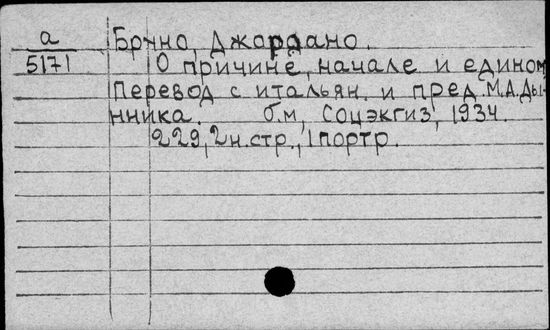 а Бруно, Джордано.
5171 О причине, начале и едином
Перевод с итальян. и пред. М.А.Ды-
нника. б.м, Соцэкгиз, 1934.
229, 2н.стр., 1портр.